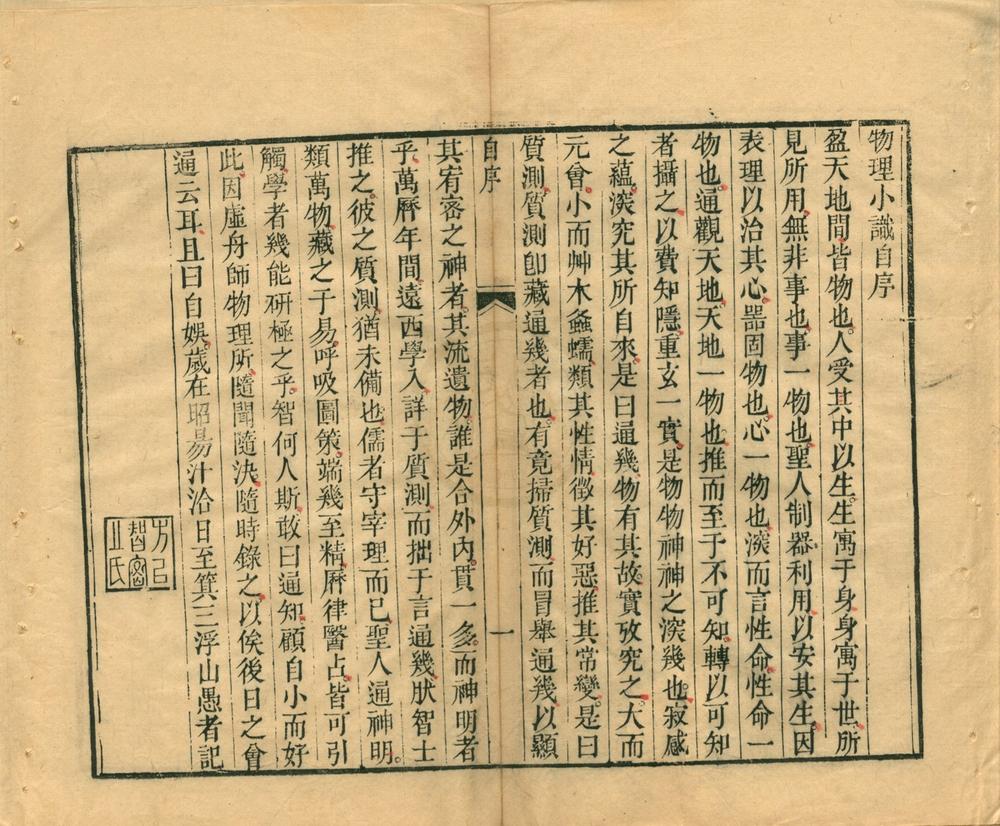 物理小識自序
盈天地間皆物也人受其中以生生寓于身身寓于世所
見所用無非事也事一物也聖人制器利用以安其生因
表理以治其心器固物也心一物也深而言性命性命一
物也通觀天地天地一物也推而至于不可知轉以可知
者攝之以費知隱重玄一實是物物神神之深幾也寂感
之蘊深究其所自來是曰通幾物有其故實攷究之大而
元會小而艸木螽蠕類其性情徵其好惡推其常變是曰
質測質測卽藏通幾者也有竟掃質測而冒舉通幾以顯
自序
一
其宥密之神者其流遺物誰是合外內貫一多而神明者
乎萬曆年間遠西學入詳于質測而拙于言通幾肰智士
推之彼之質測猶未備也儒者守宰理而已聖人通神明
類萬物藏之于易呼吸圖策端幾至精曆律醫占皆可引
觸學者幾能研極之乎智何人斯敢曰通知顧自小而好
此因虛舟師物理所隨聞隨決隨時錄之以俟後日之會
通云耳且曰自娛歲在昭昜汁洽日至箕三浮山愚者記
方氏
智密
之氏